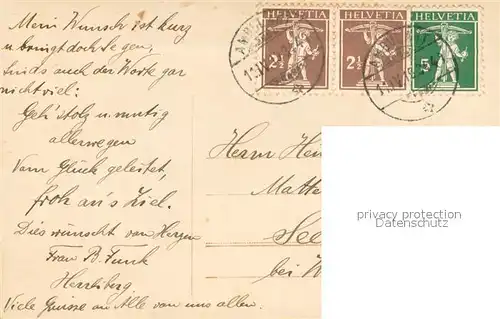 Mein Wunsch ist kurz
u bringt doch Segen,
sinds auch der Worte gar
nicht viel:
Geh' stolz u. mutig
allerwegen
Vom Glück geleitet,
froh an's Ziel.
Dies wünscht von Herzen
Frau B. Funk
Herrliberg
Viele Grüsse an Alle von uns allen.
HELVETIA
2½
HELVETIA
2½
HELVETIA
5
Herrn
Matte
See
bei
privacy protection
watermark